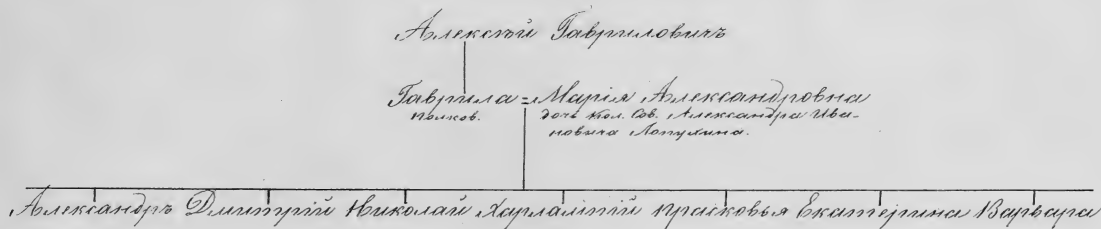 Алексѣй Гавриловичъ
Гаврила = Марія Александровна
полков. дочь Кол. Сов. Александра Ива-
новича Лопухина.
Александръ Дмитрій Николай Харлампій Прасковья Екатерина Варвара